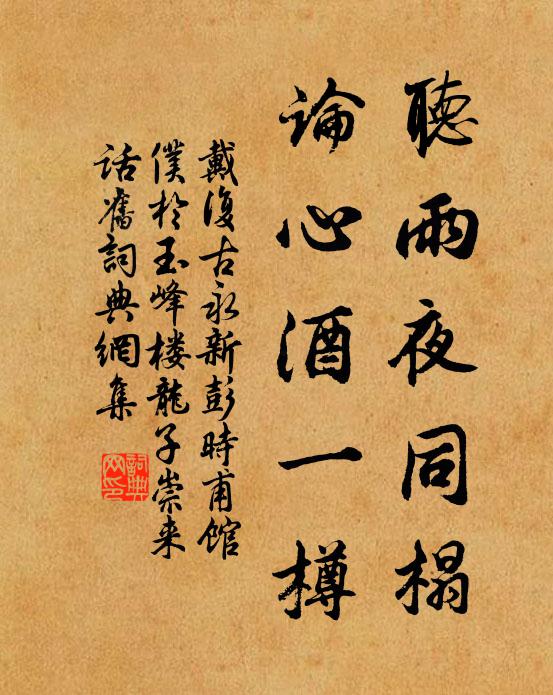 聽雨夜同榻
論心酒一樽
戴復古永新彭時甫館
僕於玉峰樓龍子崇来
話舊詞典網集
詞典网印